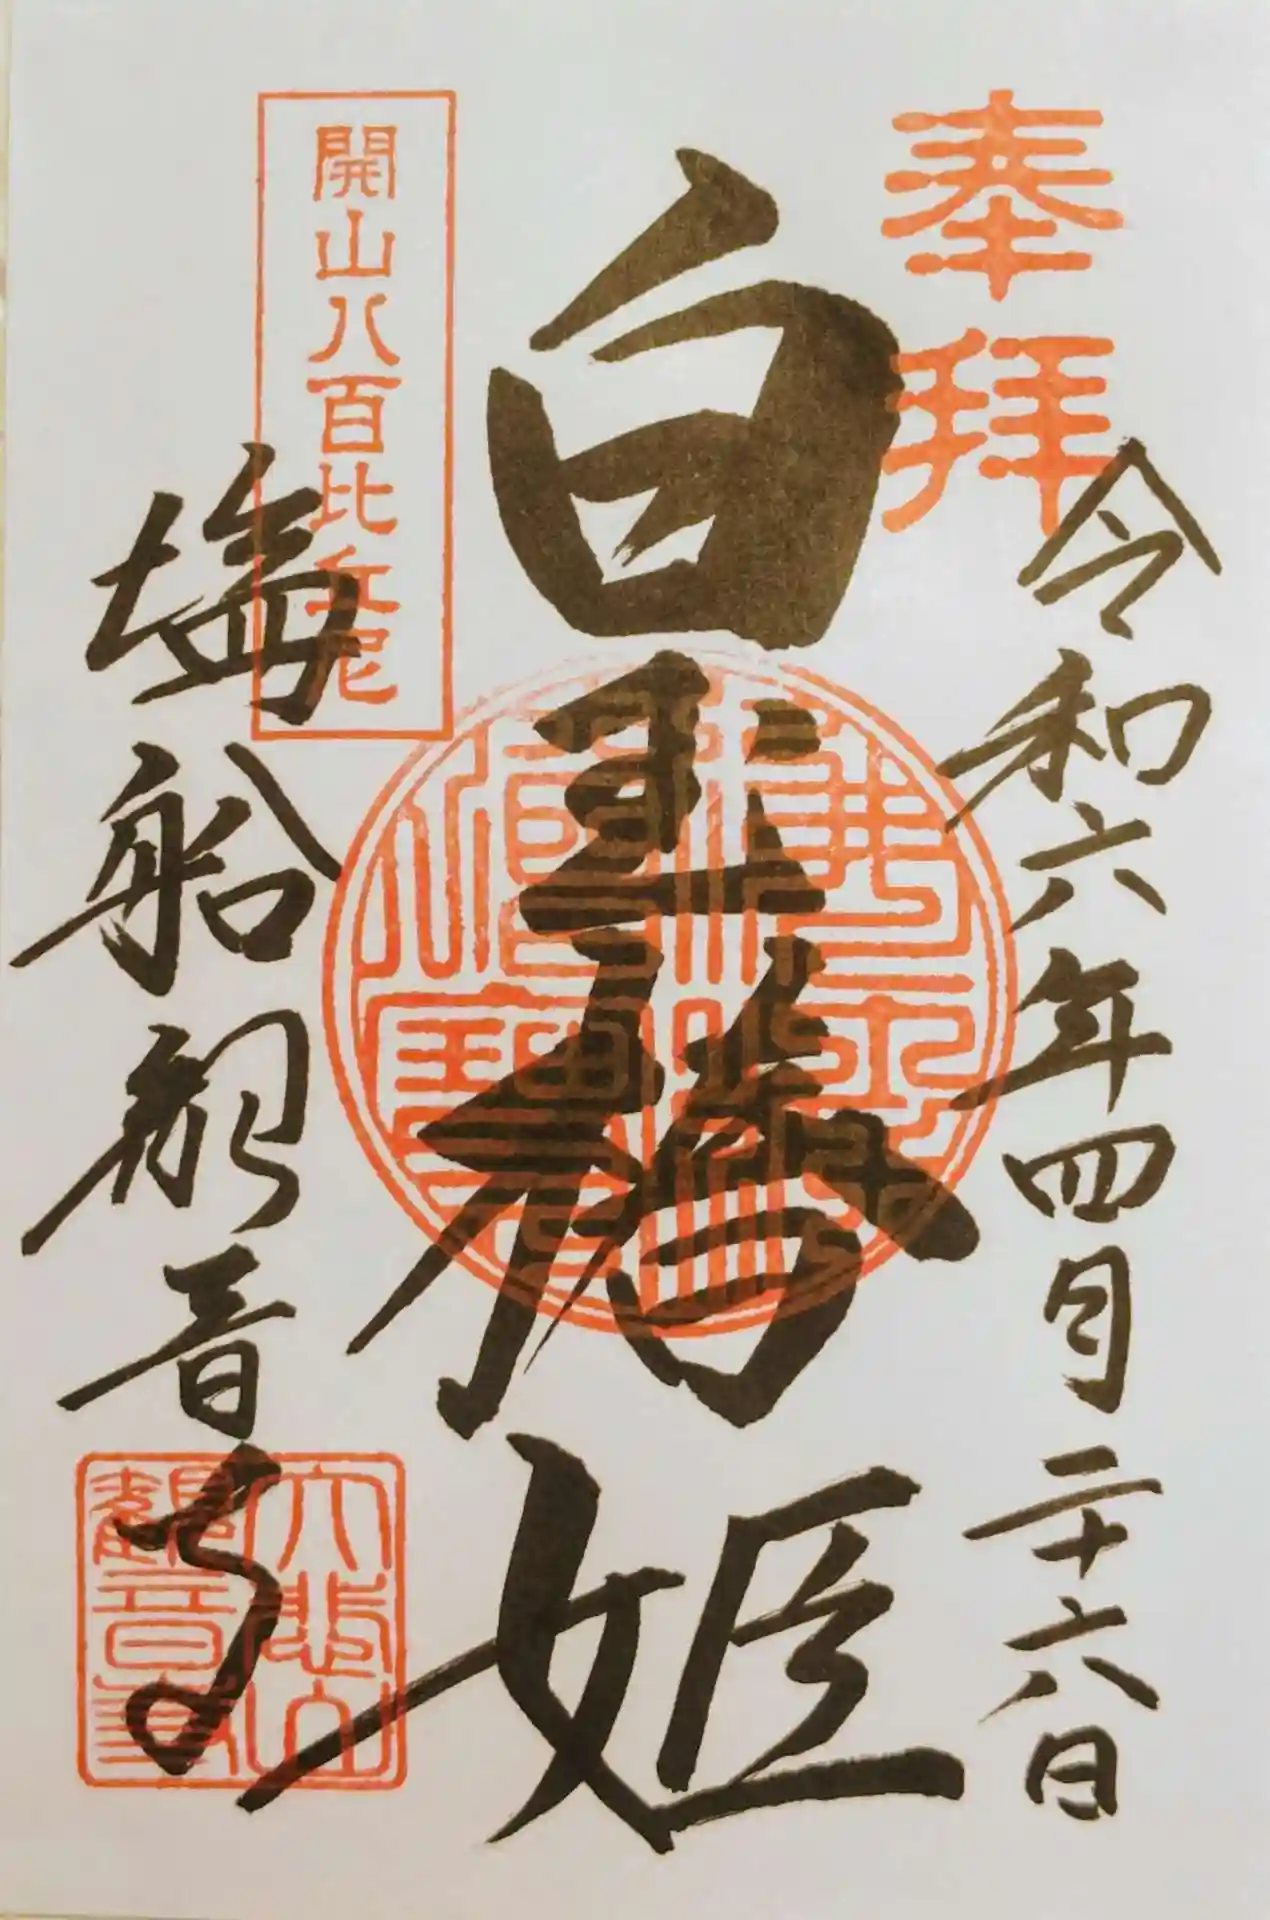 奉拝
令和六年四月二十六日
白姫
開山八百比丘尼
塩船観音寺
大悲山
觀音寺